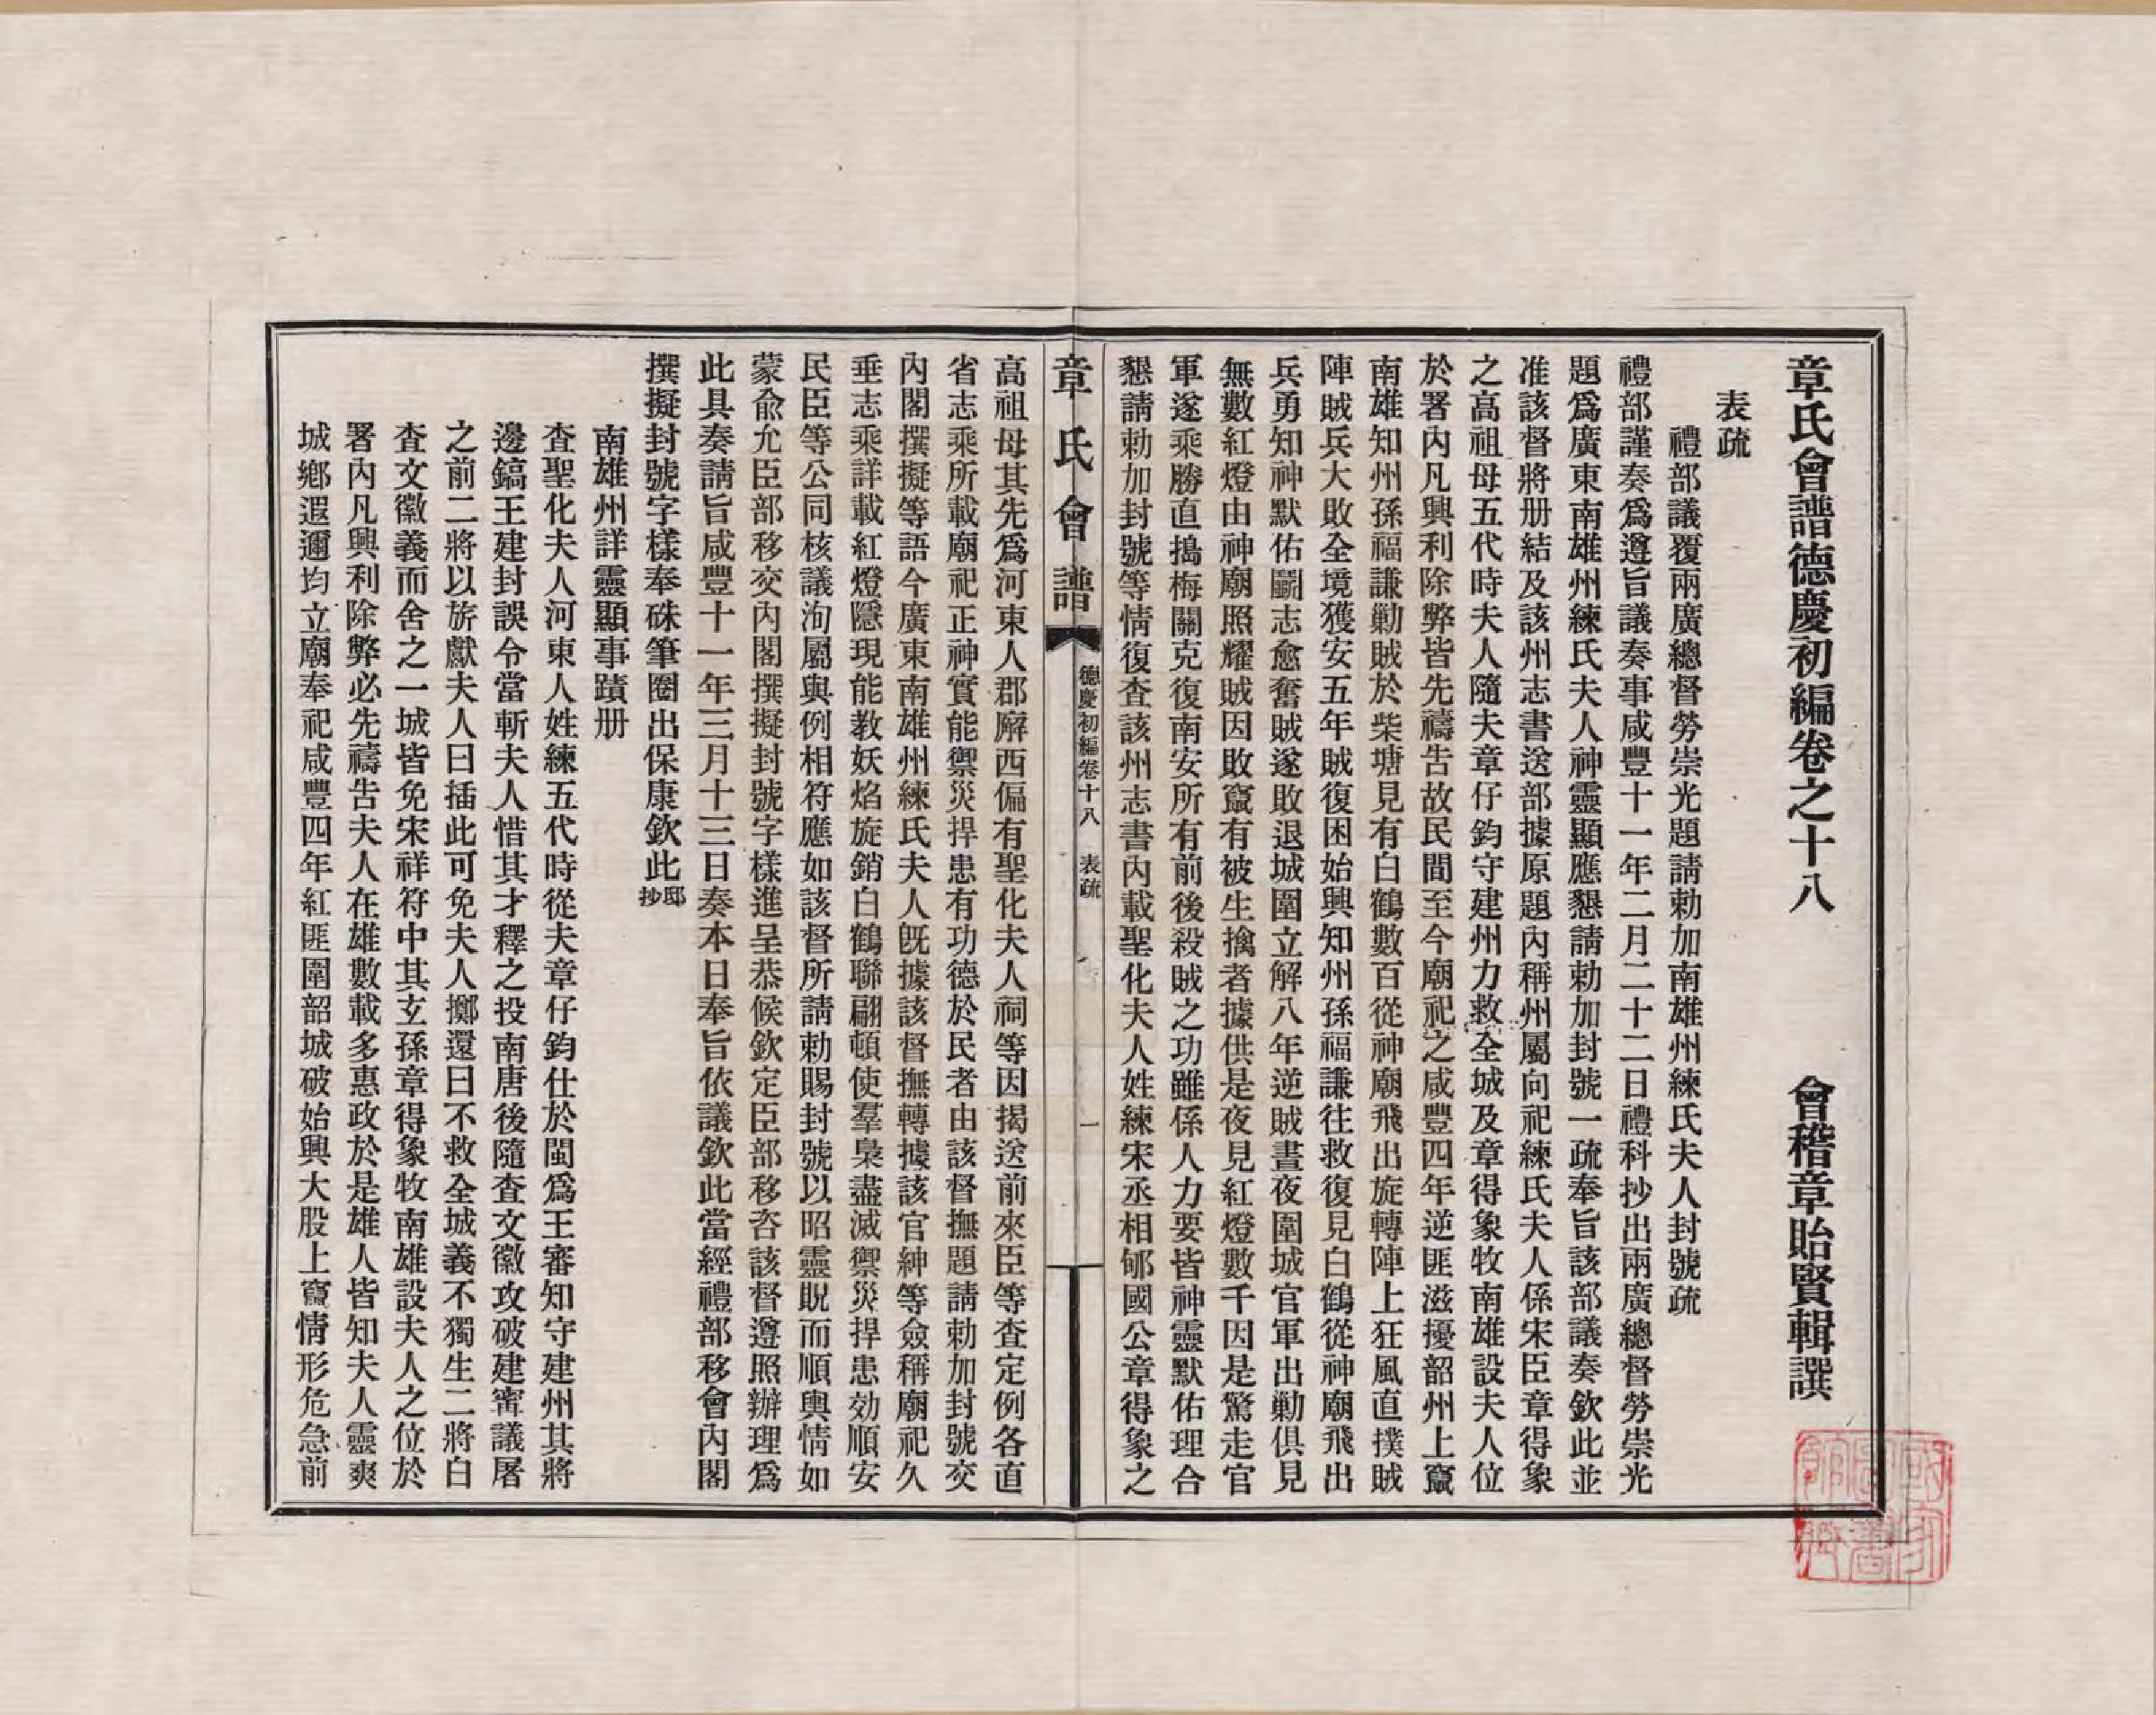 章氏會譜德慶初編卷之十八　會稽章貽賢輯譔
表疏
禮部議覆兩廣總督勞崇光題請勅加南雄州練氏夫人封號疏
禮部謹奏爲遵旨議奏事咸豐十一年二月二十二日禮科抄出兩廣總督勞崇光
題爲廣東南雄州練氏夫人神靈顯應懇請勅加封號一疏奉旨該部議奏欽此並
准該督將册結及該州志書送部據原題內稱州屬向祀練氏夫人係宋臣章得象
之高祖母五代時夫人隨夫章仔鈞守建州力救全城及章得象牧南雄設夫人位
於署內凡興利除弊皆先禱告故民間至今廟祀之咸豐四年逆匪滋擾韶州上竄
南雄知州孫福謙勦賊於柴塘見有白鶴數百從神廟飛出旋轉陣上狂風直撲賊
陣賊兵大敗全境獲安五年賊復困始興知州孫福謙往救復見白鶴從神廟飛出
兵勇知神默佑鬭志愈奮賊遂敗退城圍立解八年逆賊晝夜圍城官軍出勦俱見
無數紅燈由神廟照耀賊因敗竄有被生擒者據供是夜見紅燈數千因是驚走官
軍遂乘勝直搗梅關克復南安所有前後殺賊之功雖係人力要皆神靈默佑理合
懇請勅加封號等情復查該州志書內載聖化夫人姓練宋丞相郇國公章得象之
章氏會譜　德慶初編卷十八　表疏　一
高祖母其先爲河東人郡廨西偏有聖化夫人祠等因揭送前來臣等查定例各直
省志乘所載廟祀正神實能禦災捍患有功德於民者由該督撫題請勅加封號交
內閣撰擬等語今廣東南雄州練氏夫人旣據該督撫轉據該官紳等僉稱廟祀久
垂志乘詳載紅燈隱現能教妖焰旋銷白鶴聯翩頓使羣梟盡滅禦災捍患効順安
民臣等公同核議洵屬與例相符應如該督所請勅賜封號以昭靈貺而順輿情如
蒙兪允臣部移交內閣撰擬封號字樣進呈恭候欽定臣部移咨該督遵照辦理爲
此具奏請旨咸豐十一年三月十三日奏本日奉旨依議欽此當經禮部移會內閣
撰擬封號字樣奉硃筆圈出保康欽此邸抄
南雄州詳靈顯事蹟册
查聖化夫人河東人姓練五代時從夫章仔鈞仕於閩爲王審知守建州其將
邊鎬王建封誤令當斬夫人惜其才釋之投南唐後隨查文徽攻破建寗議屠
之前二將以旂獻夫人曰插此可免夫人擲還曰不救全城義不獨生二將白
查文徽義而舍之一城皆免宋祥符中其玄孫章得象牧南雄設夫人之位於
署內凡興利除弊必先禱告夫人在雄數載多惠政於是雄人皆知夫人靈爽
城鄉遐邇均立廟奉祀咸豐四年紅匪圍韶城破始興大股上竄情形危急前